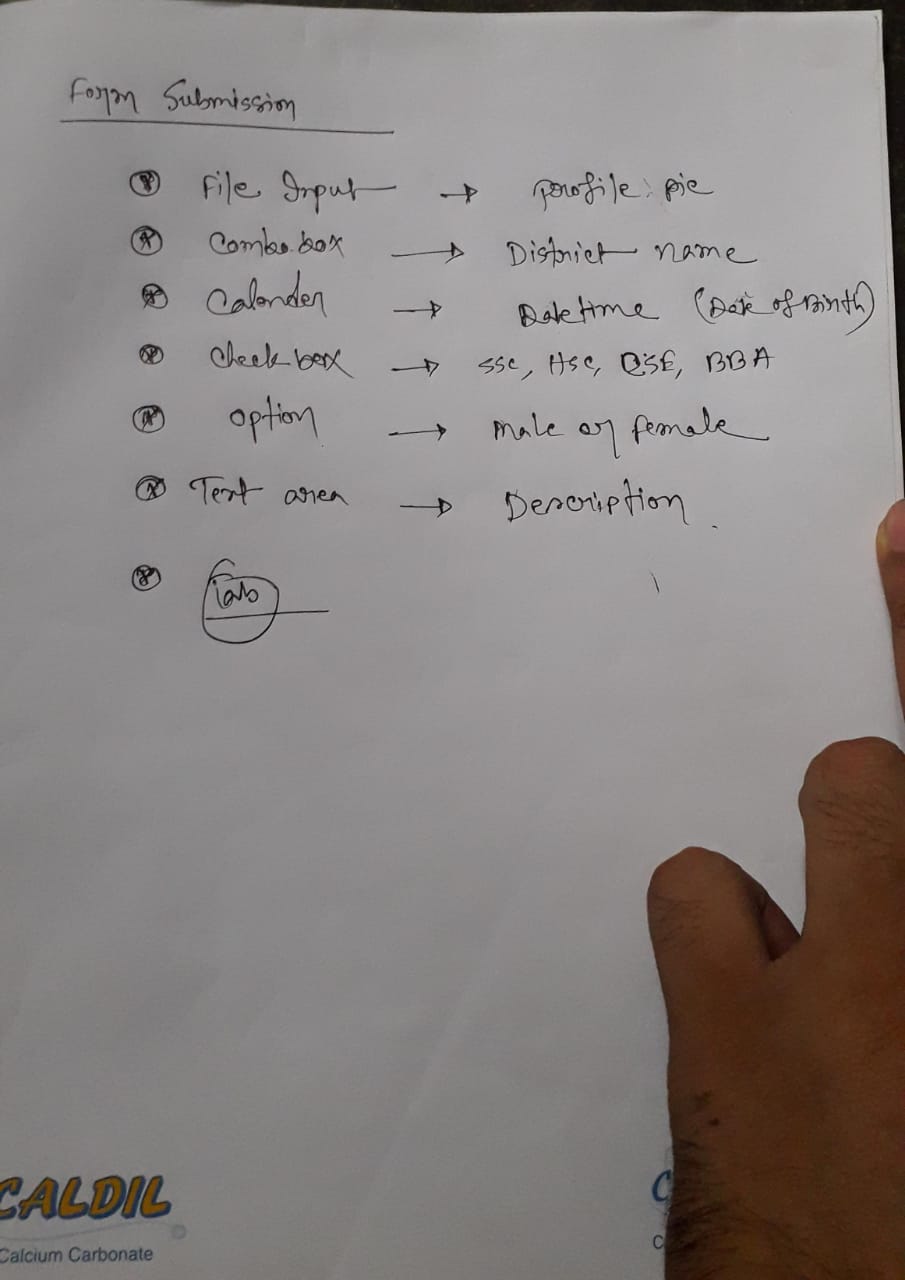 Form Submission
File Input → profile pic
Combo box → District name
Calander → Datetime (Date of Birth)
Check box → SSC, HSC, CSE, BBA
Option → male or female
Text area → Description.
Tab
CALDIL
Calcium Carbonate
C
C